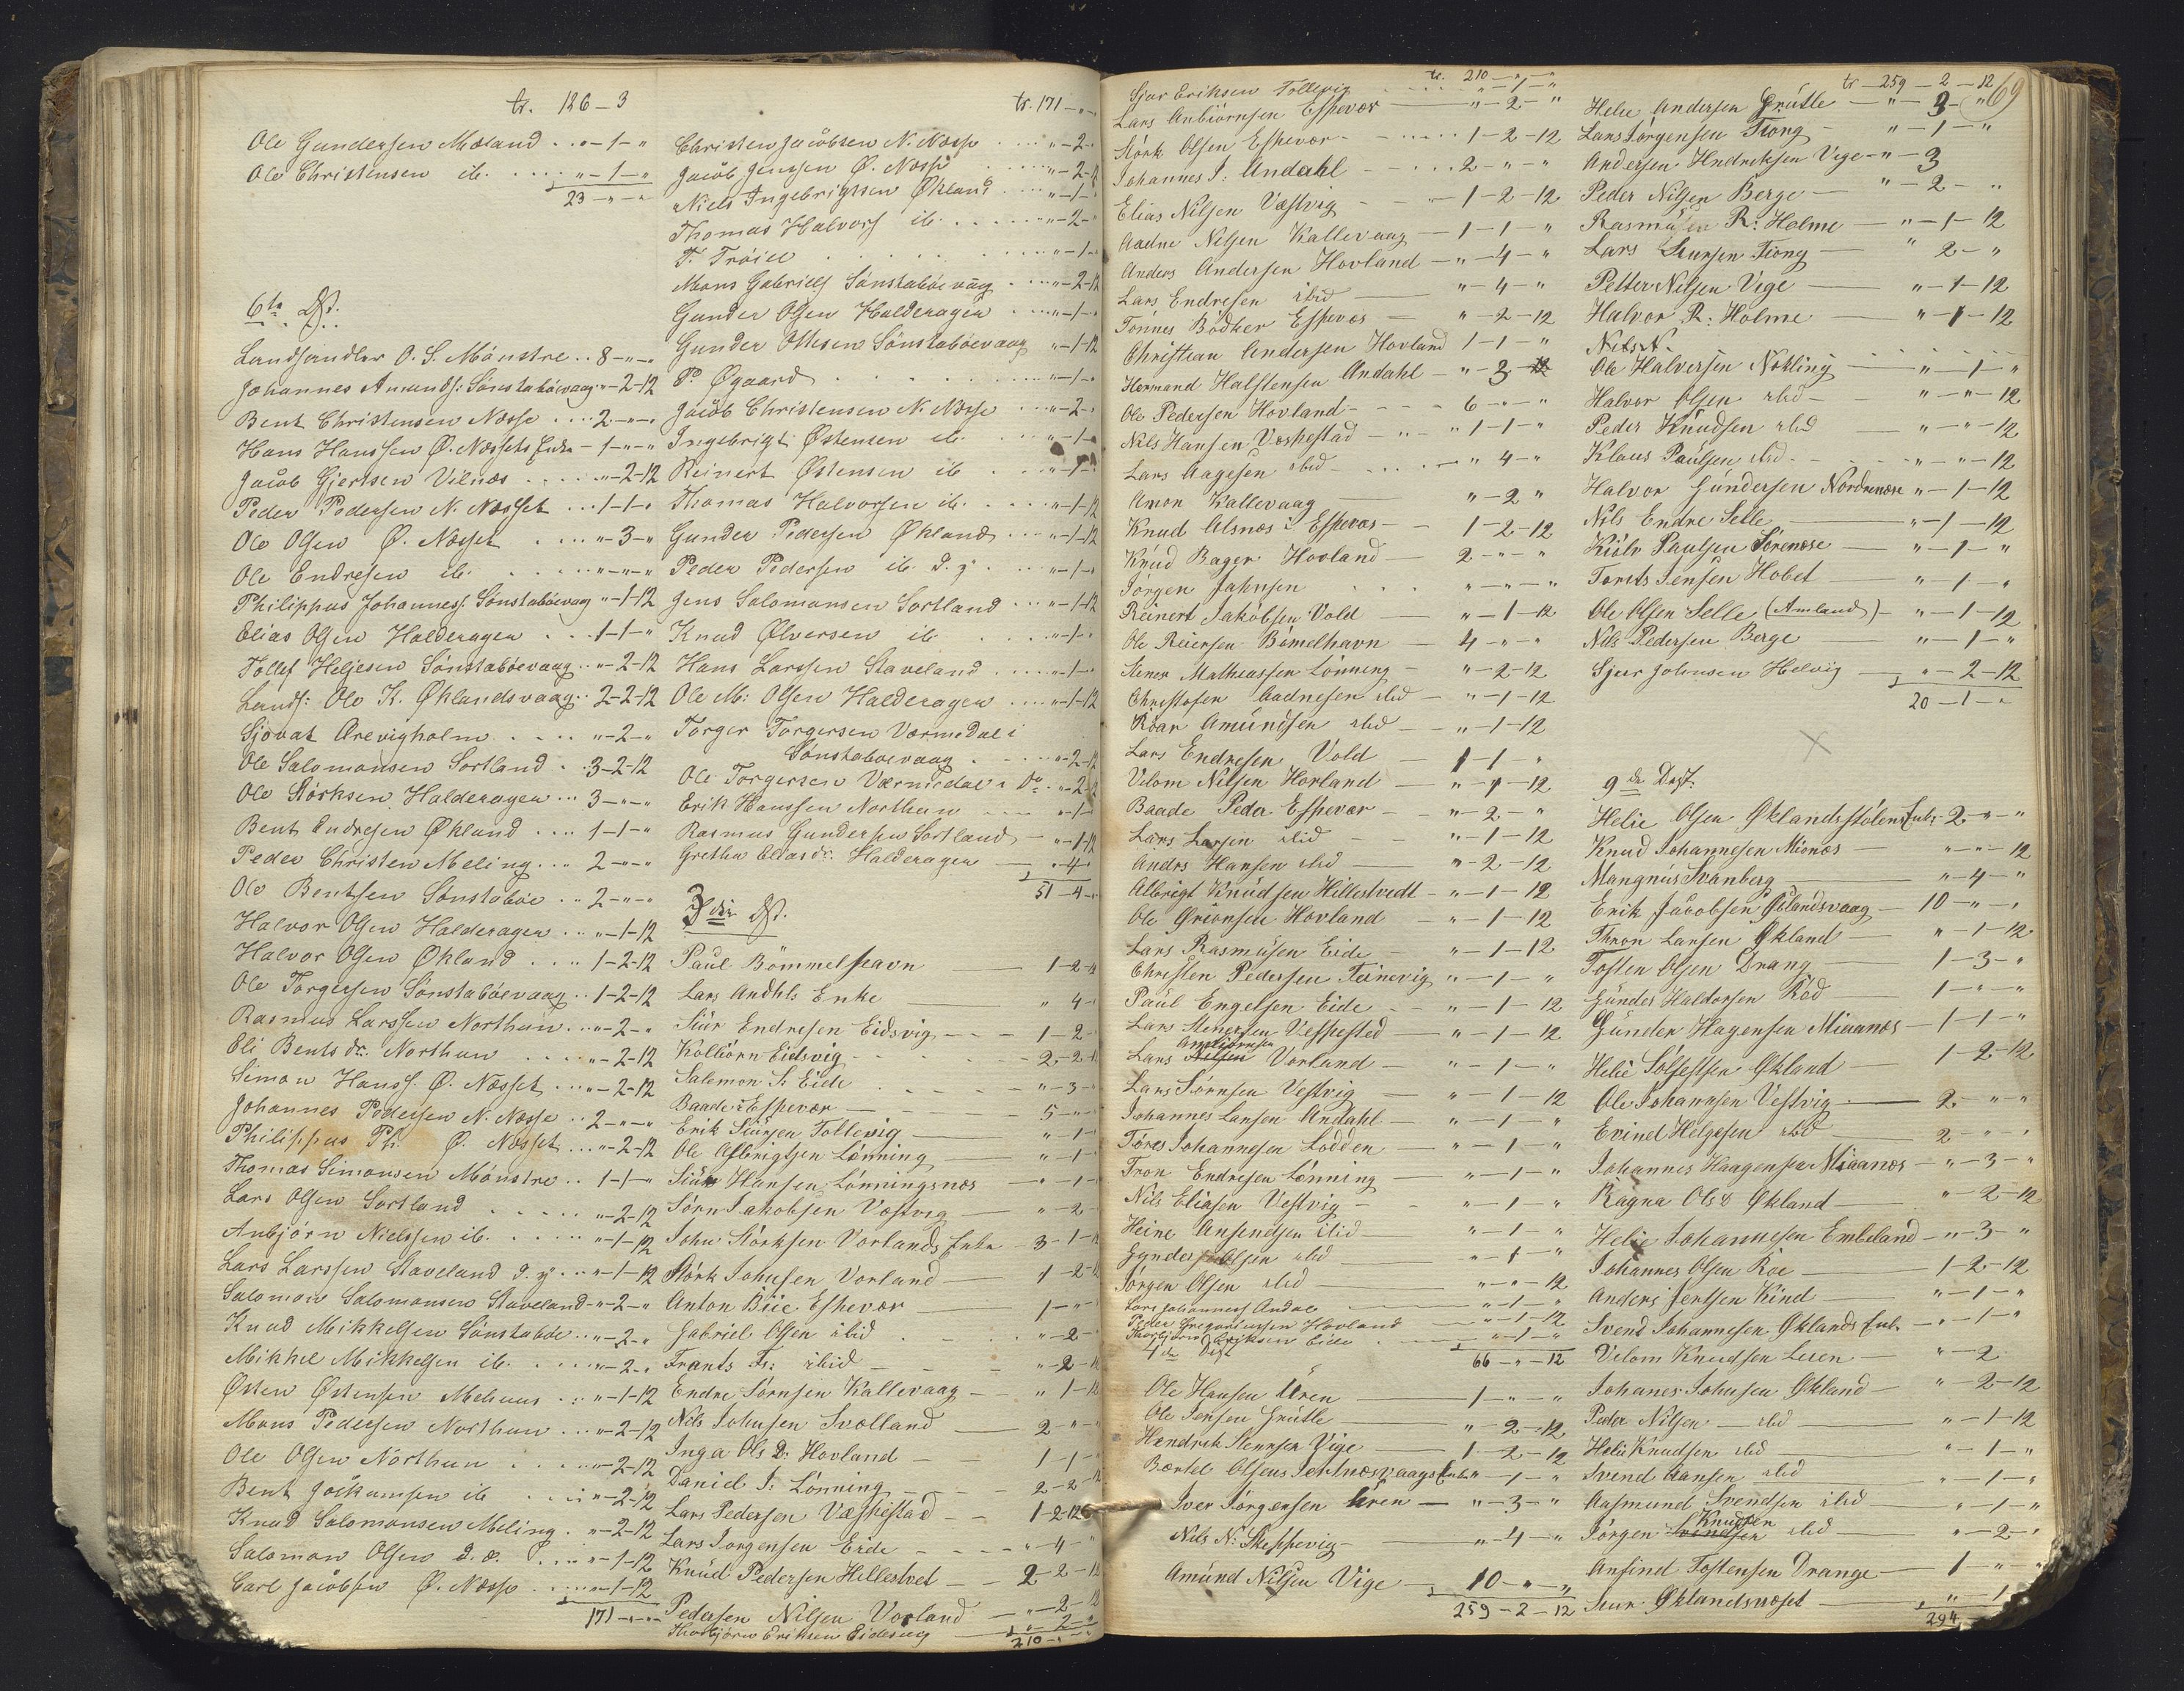 tr. 186-3
Ole Gundersen Mæland . . "-1-"
Ole Christensen ib. . . . . "-1-"
23-"-"
6te Dst.
Landhandler O. S. Mönstre . . 8-"-"
Johannes Amunds: Sönstabövaag "-2-12
Bent Christensen Næsse . . . 2-"-"
Hans Hanssen Ø. Næssets Enke - 1-"-"
Jacob Gjertsen Vilnæs . . . . "-2-12
Peder Pedersen N. Næsset . . . 1-1-"
Ole Olsen Ø. Næsset . . . . "-3-"
Ole Endresen ib. . . . . "-"-"
Philippus Johanness: Sönstabövaag "-1-12
Elias Olsen Halderagen . . . 1-1-"
Tollef Heljesen Sönstabövaag . . "-2-12
Landh: Ole K. Øklandsvaag . . 2-2-12
Sjovat Arevigholm . . . . "-2-"
Ole Salomonsen Sortland . . 3-2-12
Ole Störksen Halderagen . . . 3-"-"
Bent Andresen Økland . . . . 1-1-"
Peder Christen Meling . . . 2-"-"
Ole Bentsen Sönstaböe . . 2-"-"
Halvor Olsen Halderagen . . "-1-12
Halvor Olsen Økland . . . 1-2-12
Ole Torgersen Sönstabövaag . . 1-2-12
Rasmus Larssen Northun . . "-2-"
Eli Bents dr. Northun . . . . "-2-12
Simon Hanss. Ø. Næsset . . . "-2-12
Johannes Pedersen N. Næsse . . 2-"-"
Philippus Ph. Ø. Næsset . . . "-2-12
Thomas Simonsen Mönstre . . 1-1-"
Lars Olsen Sortland . . . . . "-2-12
Anbjörn Nielssen ib. . . . . "-1-12
Lars Larssen Staveland d. y. . . "-1-12
Salomon Salomonsen Staveland "-2-"
Knud Mikkelsen Sönstaböe . . "-2-"
Mikkel Mikkelsen ib. . . . . "-2-"
Østen Østensen Mehuus . . "-1-12
Mons Pedersen Northun . . . "-2-12
Ole Olsen Northun . . . . "-2-12
Bent Joakumsen ib . . . "-2-12
Knud Salomonsen Meling . "-2-12
Salomon Olsen d. æ. . . . "-1-12
Carl Jacobsen Ø. Næsse . . . . "-1-12
171-"-"
tr. 171-"-
Christen Jacobsen N. Næsse . . . "-2-
Jacob Jenssen Ø. Næsse . . . "-2-
Niels Ingebrigtsen Økland . . . "-1-
Thomas Halvors ib. . . . . "-2-
T. Tröie . . . . . . "-1-
Mons Gabriels Sönstabövaag . . . "-2-12
Gunder Olsen Halderagen . . . "-1-
Gunder Ottesen Sönstabövaag "-1-12
P. Øgaard . . . . . . "-1-
Jacob Christensen N. Næsse . . . "-2-
Ingebrigt Østensen ib. . . . "-1-
Reinert Østensen ib . . . . "-1-
Thomas Halvorsen ib. . . . . "-1-12
Gunder Pedersen Økland . . . "-1-12
Peder Pedersen ib. d. y. . . . "-1-
Jens Salomonsen Sortland . . . "-1-12
Knud Ølversen ib . . . . . "-1-
Hans Larssen Staveland . . . . "-1-
Ole M: Olsen Halderagen . . . . "-1-12
Torger Torgersen Værmedal i
Sönstabövaag . . . . "-2-12
Ole Torgersen Værmedal i Do. . "-2-
Erik Hanssen Northun . . . "-1-
Rasmus Gundersen Sortland - "-1-12
Grethe Eliasdr. Halderagen - "-4-
51-4-
3die Dst.
Paul Bömmelhavn — 1-2-
Lars Andhls Enke — "-4-
Siur Endresen Eidsvig - - 1-2-
Kolbiörn Eidsvig - - - 2-2-
Salemon S. Eide - - - "-3-
Baade i Espevær - - - 5-"-
Erik Siursen Tollevig — "-1-
Ole Albrigtsen Lönning — "-1-
Siur Hansen Lönningsnæs — "-1-
Sörn Jakobsen Væstvig — "-2-
John Störksen Vorlands Enke - 3-1-
Störk Johnsen Vorland — 1-2-12
Anton Biie Espevær — 1-"-
Gabriel Olsen ibid — "-2-
Frants Fr: ibid — "-2-
Endre Sörnsen Kallevaag — "-1-12
Nils Johnsen Svolland — 2-"-
Inga Ols Dr. Hovland — 1-1-
Daniel J: Lönning — 2-2-
Lars Pedersen Væspestad — 1-2-12
Lars Jorgensen Eide — "-4-"
Knud Pedersen Hillestvet — 2-2-12
Pedersen Nilsen Vorland — "-2-12
Thorbjörn Eriksen Eidesvig — "-2-"
210-"-"
tr. 210-"-"
Sjur Eriksen Tollevig . . . . "-1-"
Lars Anbiörnsen Espevær — "-2-"
Störk Olsen Espevær - . . . . 1-2-12
Johannes J: Andahl - - . . . 2-"-"
Elias Nilsen Væstvig - - - 1-2-12
Aadne Nilsen Kallevaag — 1-1-"
Anders Andersen Hovland - "-4-"
Lars Endresen ibid — "-4-"
Tönnes Bödker Espevær — "-2-12
Christian Andersen Hovland 1-1-"
Hermand Halstensen Andahl - "-3-
Ole Pedersen Hovland - - - - 6-"-"
Nils Hansen Væspestad - - - 1-1-"
Lars Aagesen ibid - . . . . - "-4-"
Amon Kallevaag — "-2-"
Knud Alsnæs i Espevær - - 1-2-12
Knud Bager Hovland — 2-"-"
Jörgen Jahnsen . . . "-"-"
Reinert Jakobsen Vold — "-1-12
Ole Reiersen Bömelhavn — 4-"-"
Stener Mathiassen Lönning - "-2-12
Christofen Aadnesen ibid — "-1-12
Roar Amundsen ibid — "-1-12
Lars Endresen Vold — 1-1-"
Velom Nilsen Hovland — "-1-12
Baade Peder Espevær - - "-2-"
Lars Larsen ibid - - "-1-12
Andrs Hansen ibid — "-2-12
Albrigt Knudsen Hillestvedt - "-1-12
Ole Brionsen Hovland "-1-12
Lars Rasmusen Eide - "-1-12
Christen Pedersen Teinevig "-1-"
Paul Engelsen Eide - - "-1-12
Lars Stenersen Vespested — "-1-12
Anbjörnsen
Lars Nilsen Vorland — "-1-"
Lars Sörnsen Vestvig — "-1-12
Johannes Larsen Andahl — "-1-"
Töres Johannesen Lodden — "-1-"
Tron Endresen Lönning — "-1-"
Nils Eliasen Vestvig - - "-1-"
Heine Ansendsen ibid — "-1-"
Gunder Olsen ibid — "-1-"
Jörgen Olsen ibid — "-"-12
Lars Johanness Andal — "-1-"
Peder Gregoriussen Hovland — "-1-12
Thorbjörn Eriksen Eide . "-1-"
66-"-12
4de Dist
Ole Hansen Uren — 1-"-"
Ole Jensen Grutle — "-2-12
Hendrik Stenersen Vige — 1-2-12
Bærtel Olsens Jertnæsvaags Enke "-1-"
Iver Jörgensen Uren — "-3-"
Nils N: Skeppevig — "-4-"
Amund Nilsen Vige — 10-"-"
259-2-12
tr-259-2-12
69
Helie Andersen Grutle — "-3-"
Lars Jörgensen Tiong - "-1-"
Andersen Hndreksen Vige - "-3
Peder Nilsen Berge — "-2-"
Rasmusen R: Holme — "-1-12
Lars Siursen Tiong — "-2-"
Petter Nilsen Vige — "-1-12
Halvor R: Holme — "-1-12
Nils N.
Ole Halversen Nötling — "-1-"
Halvor Olsen ibid - - "-"-12
Peder Knudsen ibid "-"-12
Klaus Paulsen ibid - - "-"-12
Halvor Gundersen Nordrenæse "-1-12
Nils Endre Selle — "-1-12
Kiölv Paulsen Sörenæse — "-1-"
Tomts Jensen Hobet — "-1-"
Ole Olsen Selle (Amland) - "-1-12
Nils Pedersen Berge — "-1-"
Sjur Johnsen Helvig — "-2-12
20-1-"
9de Dist.
Helie Olsen Øklandsstölens Enke 2-"-"
Knud Johannesen Mionæs — "-"-12
Mangnus Svanberg — "-4-"
Erik Jacobsen Ølandsvaag — 10-"-"
Thron Larsen Økland — "-1-12
Tosten Olsen Drang — 1-3-"
Gunder Haldorsen Röd — 1-"-"
Gunder Hagensen Miaanæs — 1-1-"
Helie Solfestsen Økland — 1-2-12
Ole Johannsen Vestvig — 2-"-"
Evind Helgesen ibid — 2-"-"
Johannes Haagensen Miaanæs — "-3-"
Ragna Olsdr Økland — "-2-12
Helie Johannesen Embeland — "-3-"
Johannes Olsen Roe — 1-2-12
Anders Jertsen Kind — "-1-"
Svend Johannesen Øklands Enk. — "-1-"
Velom Knudsen Leren — "-2
Johanes Johnsen Økland — "-2-12
Peder Nilsen ibid — "-1-12
Helie Knudsen ibid — "-1-"
Svend Aansen ibid — "-1-"
Aasmund Svendsen ibid — "-1-"
Knudsen
Jörgen Svendsen ibid — "-2-"
Ansind Tostensen Drange — 1-"-"
Siur Øklandsnæset — "-1
294